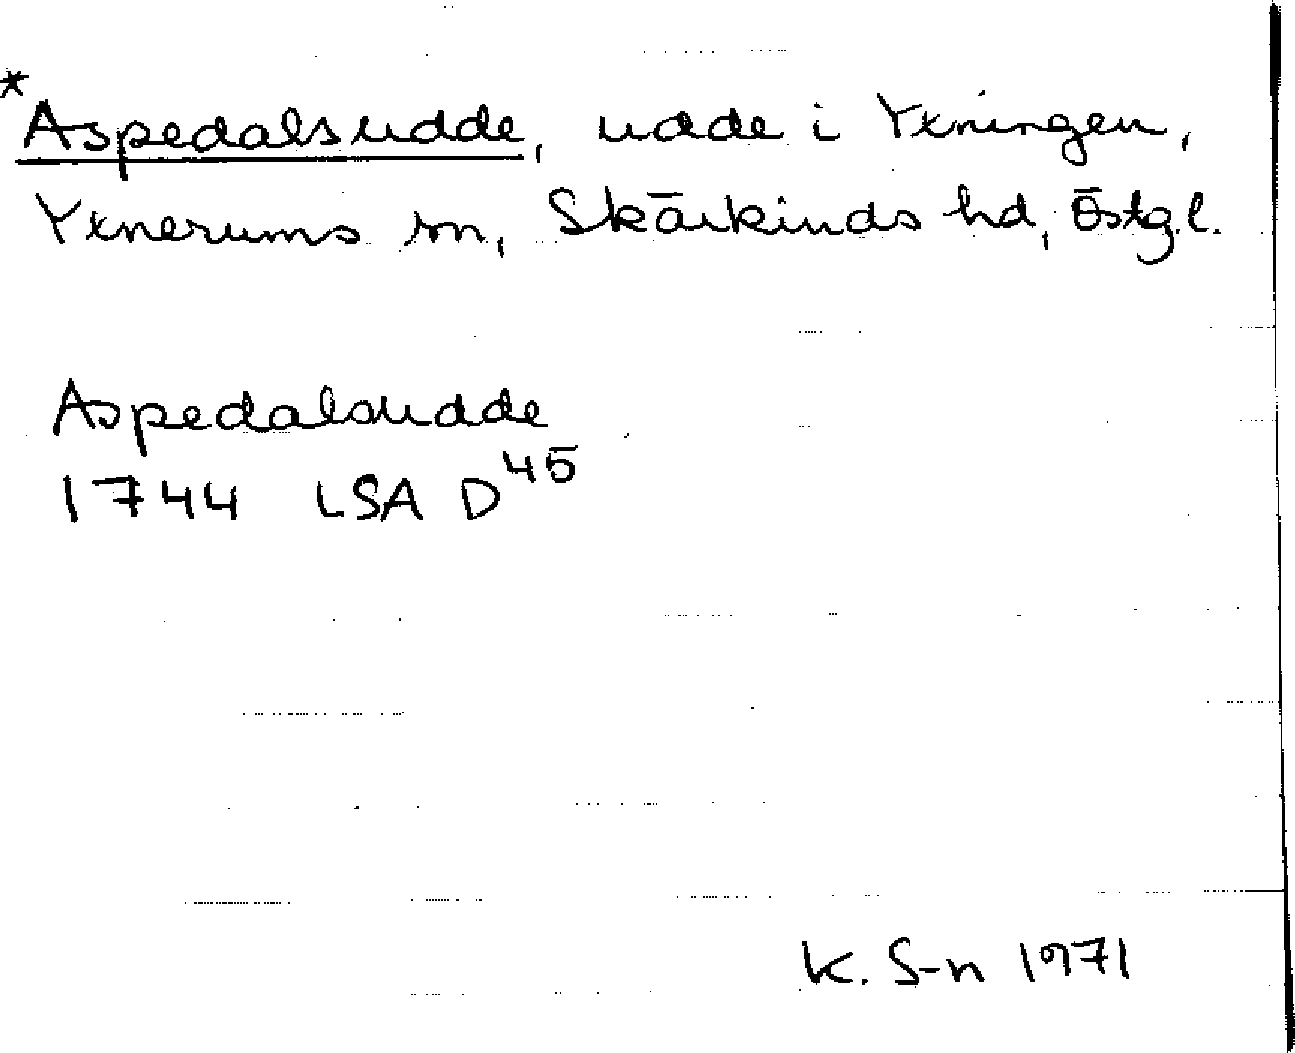 *Aspedalsudde, udde i Yxningen,
Yxnerums sn, Skärkinds hd, Östg.l.
Aspedalsudde
1744 LSA D45
K. S-n 1971